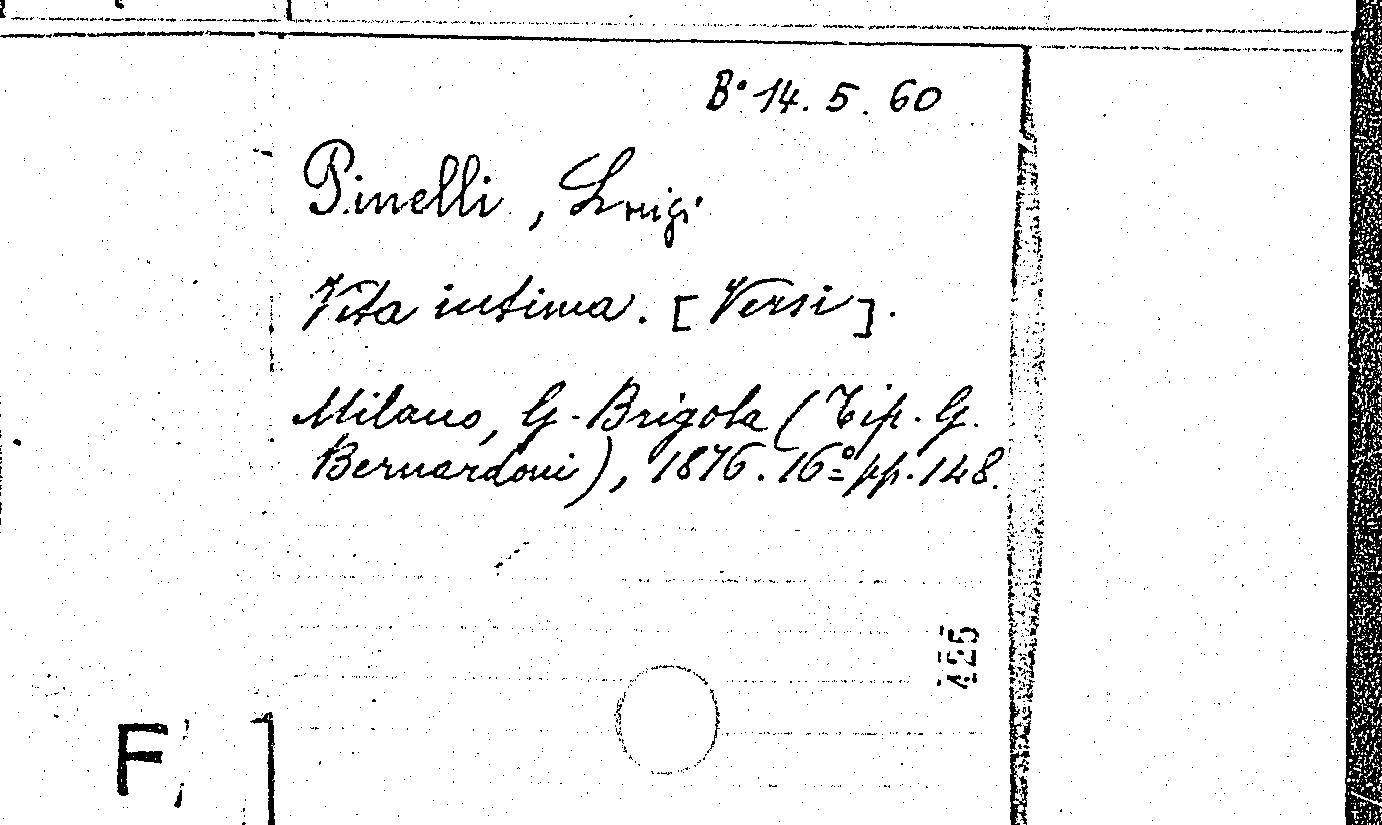 B° 14. 5. 60
Pinelli, Luigi
Vita intima. [Versi].
Milano, G. Brigola (Tip. G.
Bernardoni), 1876. 16° pp. 148.
425
F